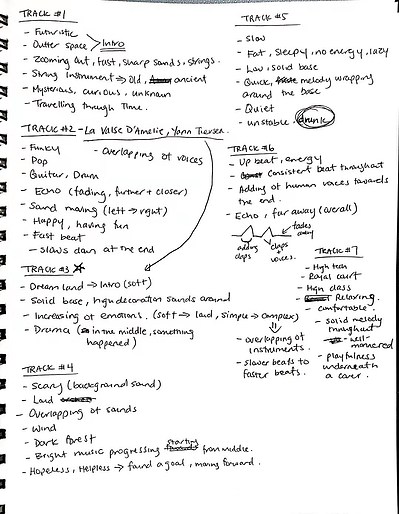 TRACK #1
- Futuristic
- Outer space > Intro
- Zooming out, fast, sharp sands, strings.
- String instrument → old, ancient
- Mysterious, curious, unknown
- Travelling through Time.
TRACK #2 - La Valse D'Amelie, Yann Tiersen.
- Funky - overlapping of voices
- Pop
- Guitar, Drum
- Echo (fading, further + closer)
- Sound moving (left → right)
- Happy, having fun
- Fast beat
- Slows down at the end
TRACK #3
- Dream land → Intro (soft)
- Solid base, high decoration sounds around
- Increasing of emotions. (soft → loud, simple → complex)
- Drama (in the middle, something
happened)
- overlapping of
instruments.
- slower beats to
faster beats.
TRACK #4
- Scary (background sound)
- Loud
- Overlapping of sounds
- Wind
- Dark forest
- Bright music progressing starting from middle.
- Hopeless, Helpless → found a goal, moving forward.
TRACK #5
- Slow
- Fat, sleepy, no energy, lazy
- Low, solid base
- Quick, melody wrapping
around the base
- Quiet
- unstable. drunk
TRACK #6
- Up beat, energy
- Consistent beat throughout
- Adding of human voices towards
the end.
- Echo, far away (overall)
fades
away
adding
claps
claps
+
voices.
TRACK #7
- High tech
- Royal court
- High class
- Relaxing.
- comfortable.
- solid melody
throughout
- well-
mannered
- playfulness
underneath
a cover.